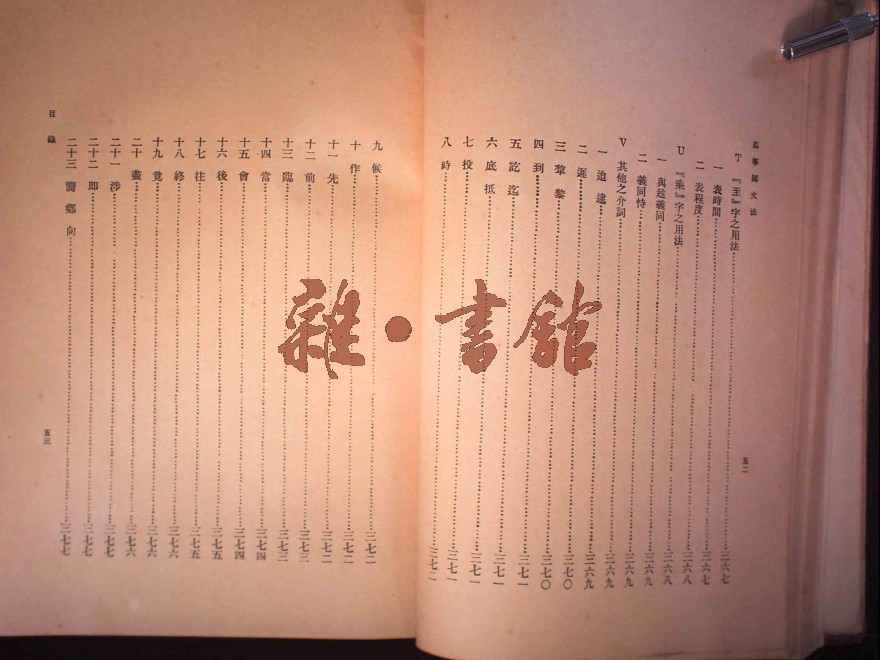 高等國文法
T『至』字之用法……三六七
一 表時間……三六七
二 表程度……三六七
U『乘』字之用法……三六八
一 與趁義同……三六八
二 義同恃……三六九
V 其他之介詞……三六九
一 迨 逮……三六九
二 遲……三六九
三 犂 黎……三七〇
四 到……三七〇
五 訖 迄……三七一
六 底 抵……三七一
七 投……三七一
八 時……三七二
五二
目錄
九 候……三七二
十 作……三七二
十一 先……三七二
十二 前……三七三
十三 臨……三七三
十四 當……三七四
十五 會……三七四
十六 後……三七五
十七 往……三七五
十八 終……三七六
十九 竟……三七六
二十 盡……三七六
二十一 涉……三七七
二十二 即……三七七
二十三 嚮 鄉 向……三七七
五三
雜·書館